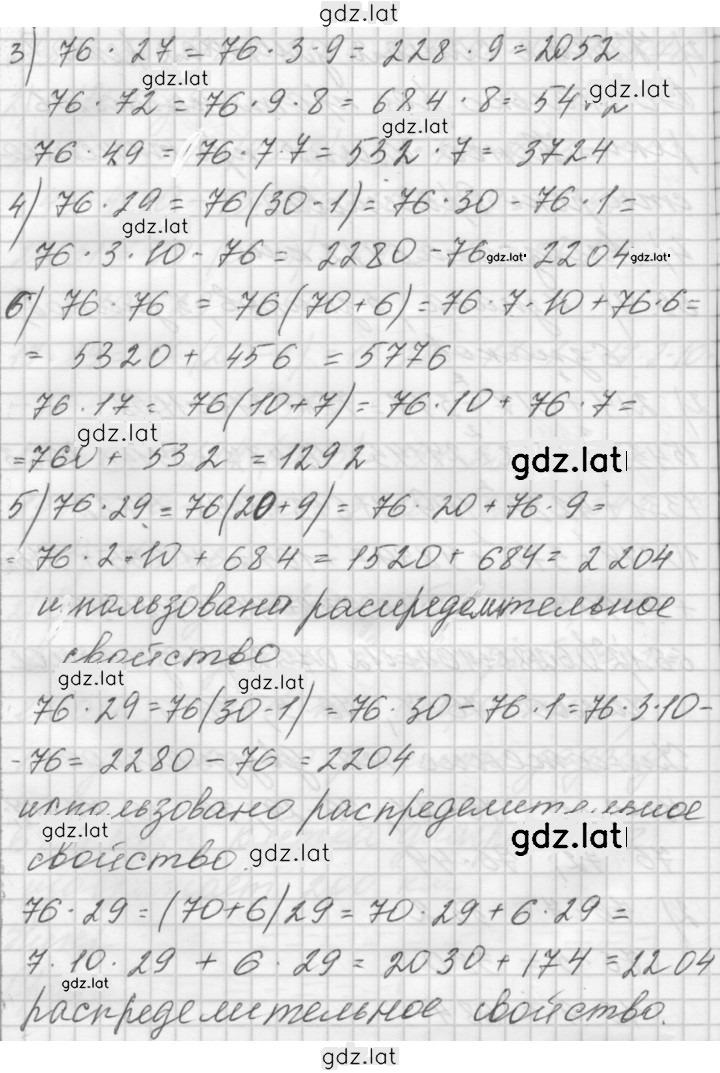 gdz.lat
3) 76 · 27 = 76 · 3 · 9 = 228 · 9 = 2052
gdz.lat
76 · 72 = 76 · 9 · 8 = 684 · 8 = 54
gdz.lat
gdz.lat
76 · 49 = 76 · 7 · 7 = 532 · 7 = 3724
4) 76 · 29 = 76(30 - 1) = 76 · 30 - 76 · 1 =
gdz.lat
76 · 3 · 10 - 76 = 2280 - 76 gdz.lat 2204 gdz.lat
6) 76 · 76 = 76(70 + 6) = 76 · 7 · 10 + 76 · 6 =
= 5320 + 456 = 5776
76 · 17 = 76(10 + 7) = 76 · 10 + 76 · 7 =
gdz.lat
= 760 + 532 = 1292
gdz.lat
5) 76 · 29 = 76(20 + 9) = 76 · 20 + 76 · 9 =
= 76 · 2 · 10 + 684 = 1520 + 684 = 2204
использовано распределительное
свойство
gdz.lat
gdz.lat
76 · 29 = 76(30 - 1) = 76 · 30 - 76 · 1 = 76 · 3 · 10 -
- 76 = 2280 - 76 = 2204
использовано распределительное
gdz.lat
gdz.lat
свойство.
gdz.lat
76 · 29 = (70 + 6)29 = 70 · 29 + 6 · 29 =
7 · 10 · 29 + 6 · 29 = 2030 + 174 = 2204
gdz.lat
распределительное свойство.
gdz.lat